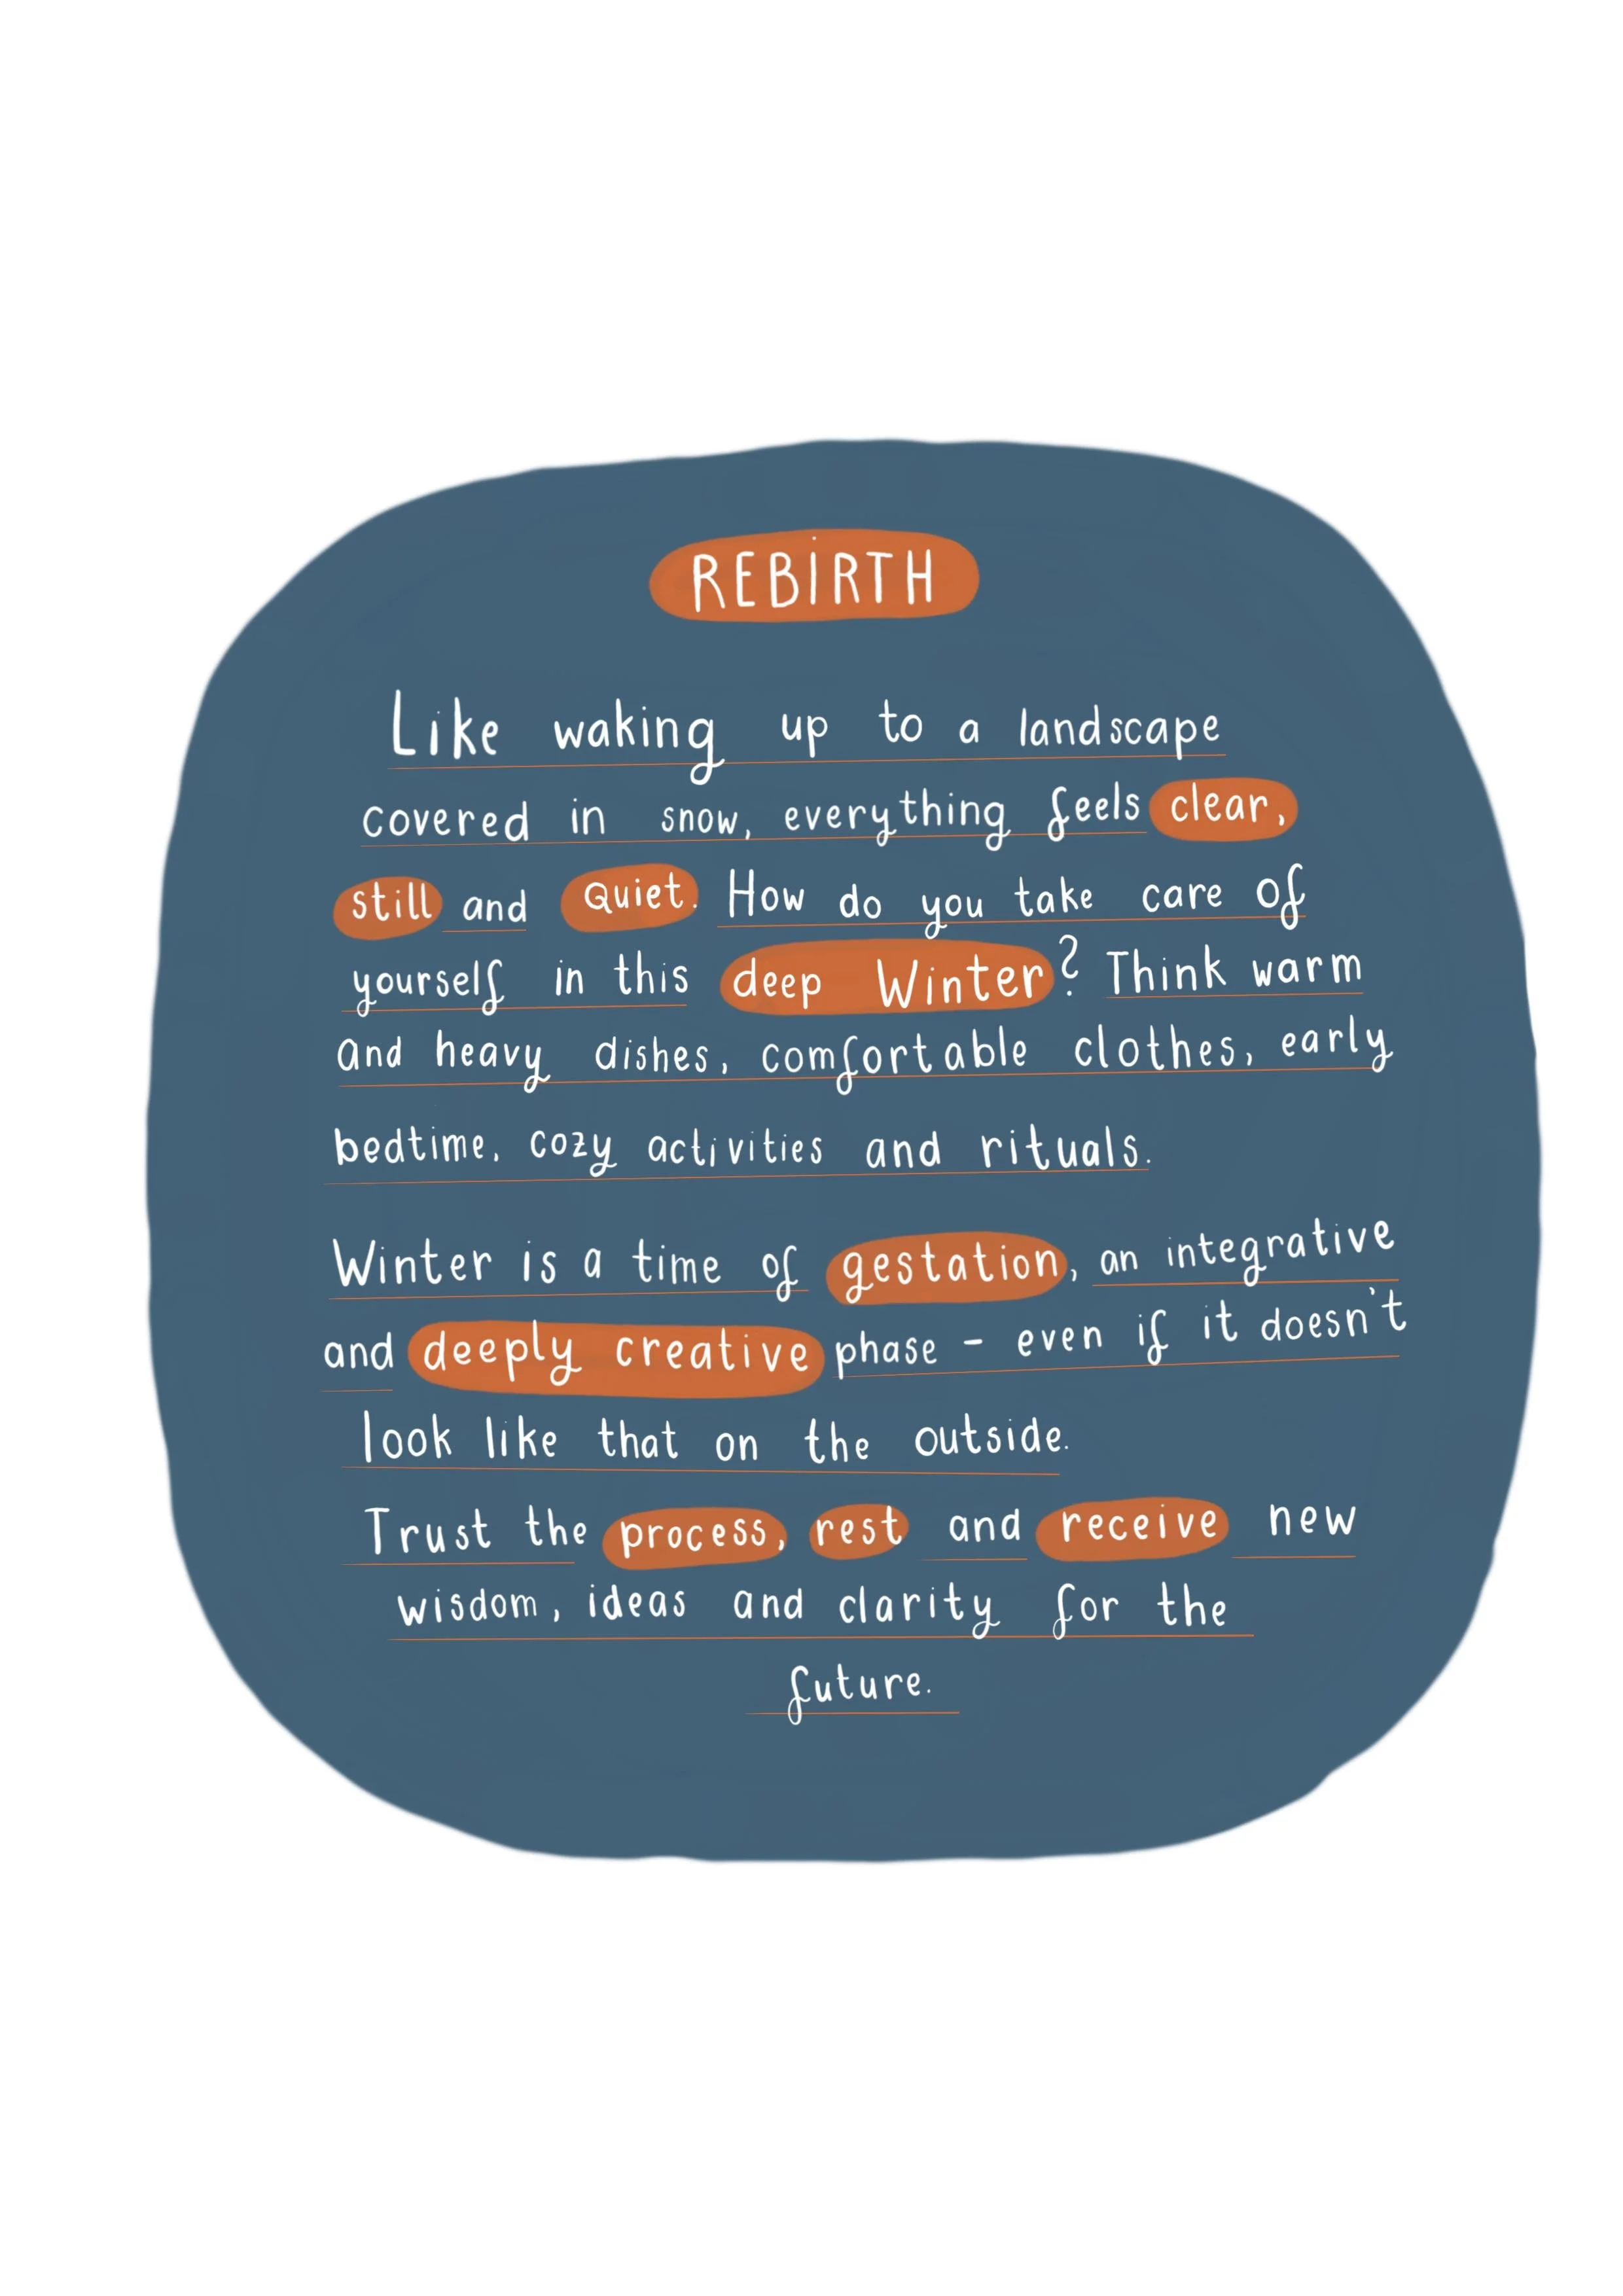 REBIRTH
Like waking up to a landscape
covered in snow, everything feels clear,
still and Quiet. How do you take care of
yourself in this deep Winter? Think warm
and heavy dishes, comfortable clothes, early
bedtime, cozy activities and rituals.
Winter is a time of gestation, an integrative
and deeply creative phase - even if it doesn't
look like that on the outside.
Trust the process, rest and receive new
wisdom, ideas and clarity for the
future.